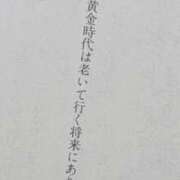 黄金時代は老いて行く将来にあ